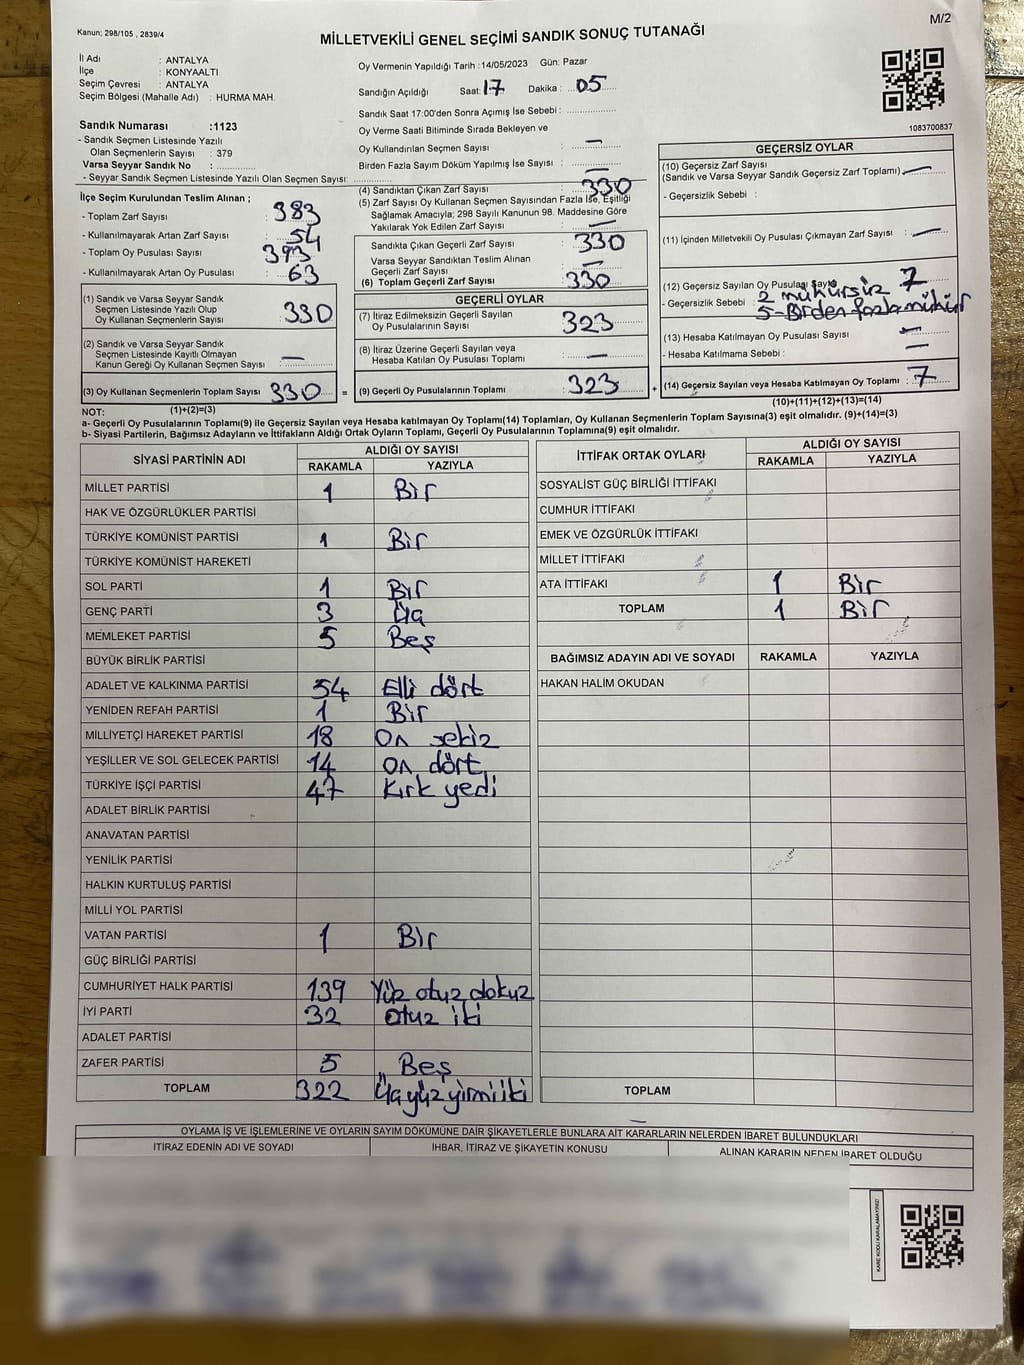 M/2
Kanun; 298/105 , 2839/4
MİLLETVEKİLİ GENEL SEÇİMİ SANDIK SONUÇ TUTANAĞI
İl Adı : ANTALYA
İlçe : KONYAALTI
Seçim Çevresi : ANTALYA
Seçim Bölgesi (Mahalle Adı) : HURMA MAH.
Sandık Numarası :1123
- Sandık Seçmen Listesinde Yazılı
Olan Seçmenlerin Sayısı : 379
Varsa Seyyar Sandık No :
- Seyyar Sandık Seçmen Listesinde Yazılı Olan Seçmen Sayısı:
Oy Vermenin Yapıldığı Tarih :14/05/2023 Gün: Pazar
Sandığın Açıldığı Saat: 17 Dakika : 05
Sandık Saat 17:00'den Sonra Açımış İse Sebebi :
Oy Verme Saati Bitiminde Sırada Bekleyen ve
Oy Kullandırılan Seçmen Sayısı : —
Birden Fazla Sayım Döküm Yapılmış İse Sayısı : —
1083700837
İlçe Seçim Kurulundan Teslim Alınan ;
- Toplam Zarf Sayısı : 383
- Kullanılmayarak Artan Zarf Sayısı : 54
- Toplam Oy Pusulası Sayısı : 393
- Kullanılmayarak Artan Oy Pusulası : 63
(1) Sandık ve Varsa Seyyar Sandık
Seçmen Listesinde Yazılı Olup
Oy Kullanan Seçmenlerin Sayısı : 330
(2) Sandık ve Varsa Seyyar Sandık
Seçmen Listesinde Kayıtlı Olmayan
Kanun Gereği Oy Kullanan Seçmen Sayısı : —
(3) Oy Kullanan Seçmenlerin Toplam Sayısı : 330 =
(1)+(2)=(3)
(4) Sandıktan Çıkan Zarf Sayısı : 330
(5) Zarf Sayısı Oy Kullanan Seçmen Sayısından Fazla İse, Eşitliği
Sağlamak Amacıyla; 298 Sayılı Kanunun 98. Maddesine Göre
Yakılarak Yok Edilen Zarf Sayısı : —
Sandıkta Çıkan Geçerli Zarf Sayısı : 330
Varsa Seyyar Sandıktan Teslim Alınan
Geçerli Zarf Sayısı : —
(6) Toplam Geçerli Zarf Sayısı : 330
GEÇERLİ OYLAR
(7) İtiraz Edilmeksizin Geçerli Sayılan
Oy Pusulalarının Sayısı : 323
(8) İtiraz Üzerine Geçerli Sayılan veya
Hesaba Katılan Oy Pusulası Toplamı : —
(9) Geçerli Oy Pusulalarının Toplamı : 323 +
GEÇERSİZ OYLAR
(10) Geçersiz Zarf Sayısı
(Sandık ve Varsa Seyyar Sandık Geçersiz Zarf Toplamı) : —
- Geçersizlik Sebebi :
(11) İçinden Milletvekili Oy Pusulası Çıkmayan Zarf Sayısı : —
(12) Geçersiz Sayılan Oy Pusulası Sayısı : 7
- Geçersizlik Sebebi : 2 mühürsüz
5-Birden fazla mühür
(13) Hesaba Katılmayan Oy Pusulası Sayısı : —
- Hesaba Katılmama Sebebi : —
(14) Geçersiz Sayılan veya Hesaba Katılmayan Oy Toplamı : 7
(10)+(11)+(12)+(13)=(14)
NOT:
a- Geçerli Oy Pusulalarının Toplamı(9) ile Geçersiz Sayılan veya Hesaba katılmayan Oy Toplamı(14) Toplamları, Oy Kullanan Seçmenlerin Toplam Sayısına(3) eşit olmalıdır. (9)+(14)=(3)
b- Siyasi Partilerin, Bağımsız Adayların ve İttifakların Aldığı Ortak Oyların Toplamı, Geçerli Oy Pusulalarının Toplamına(9) eşit olmalıdır.
SİYASİ PARTİNİN ADI ALDIĞI OY SAYISI
RAKAMLA YAZIYLA
MİLLET PARTİSİ 1 Bir
HAK VE ÖZGÜRLÜKLER PARTİSİ
TÜRKİYE KOMÜNİST PARTİSİ 1 Bir
TÜRKİYE KOMÜNİST HAREKETİ
SOL PARTİ 1 Bir
GENÇ PARTİ 3 Üç
MEMLEKET PARTİSİ 5 Beş
BÜYÜK BİRLİK PARTİSİ
ADALET VE KALKINMA PARTİSİ 54 Elli dört
YENİDEN REFAH PARTİSİ 1 Bir
MİLLİYETÇİ HAREKET PARTİSİ 18 On sekiz
YEŞİLLER VE SOL GELECEK PARTİSİ 14 On dört
TÜRKİYE İŞÇİ PARTİSİ 47 Kırk yedi
ADALET BİRLİK PARTİSİ
ANAVATAN PARTİSİ
YENİLİK PARTİSİ
HALKIN KURTULUŞ PARTİSİ
MİLLİ YOL PARTİSİ
VATAN PARTİSİ 1 Bir
GÜÇ BİRLİĞİ PARTİSİ
CUMHURİYET HALK PARTİSİ 139 Yüz otuz dokuz
İYİ PARTİ 32 otuz iki
ADALET PARTİSİ
ZAFER PARTİSİ 5 Beş
TOPLAM 322 Üç yüz yirmi iki
İTTİFAK ORTAK OYLARI ALDIĞI OY SAYISI
RAKAMLA YAZIYLA
SOSYALİST GÜÇ BİRLİĞİ İTTİFAKI
CUMHUR İTTİFAKI
EMEK VE ÖZGÜRLÜK İTTİFAKI
MİLLET İTTİFAKI
ATA İTTİFAKI 1 Bir
TOPLAM 1 Bir
BAĞIMSIZ ADAYIN ADI VE SOYADI RAKAMLA YAZIYLA
HAKAN HALİM OKUDAN
TOPLAM
OYLAMA İŞ VE İŞLEMLERİNE VE OYLARIN SAYIM DÖKÜMÜNE DAİR ŞİKAYETLERLE BUNLARA AİT KARARLARIN NELERDEN İBARET BULUNDUKLARI
İTİRAZ EDENİN ADI VE SOYADI İHBAR, İTİRAZ VE ŞİKAYETİN KONUSU ALINAN KARARIN NEDEN İBARET OLDUĞU
KARE KODU KARALAMAYINIZ!